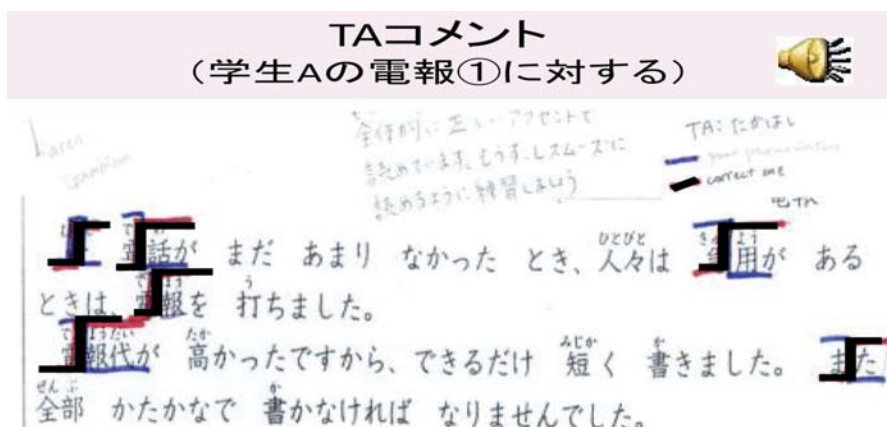 TAコメント
(学生Aの電報①に対する)
全体的に正しいアクセントで
読めています。もう少しスムーズに
読めるように練習しましょう
TA: たかはし
your pronunciation
correct one
電話が まだ あまり なかった とき、人々は 急用が ある
ときは、電報を 打ちました。
電報代が 高かったですから、できるだけ 短く 書きました。 また
全部 かたかなで 書かなければ なりませんでした。